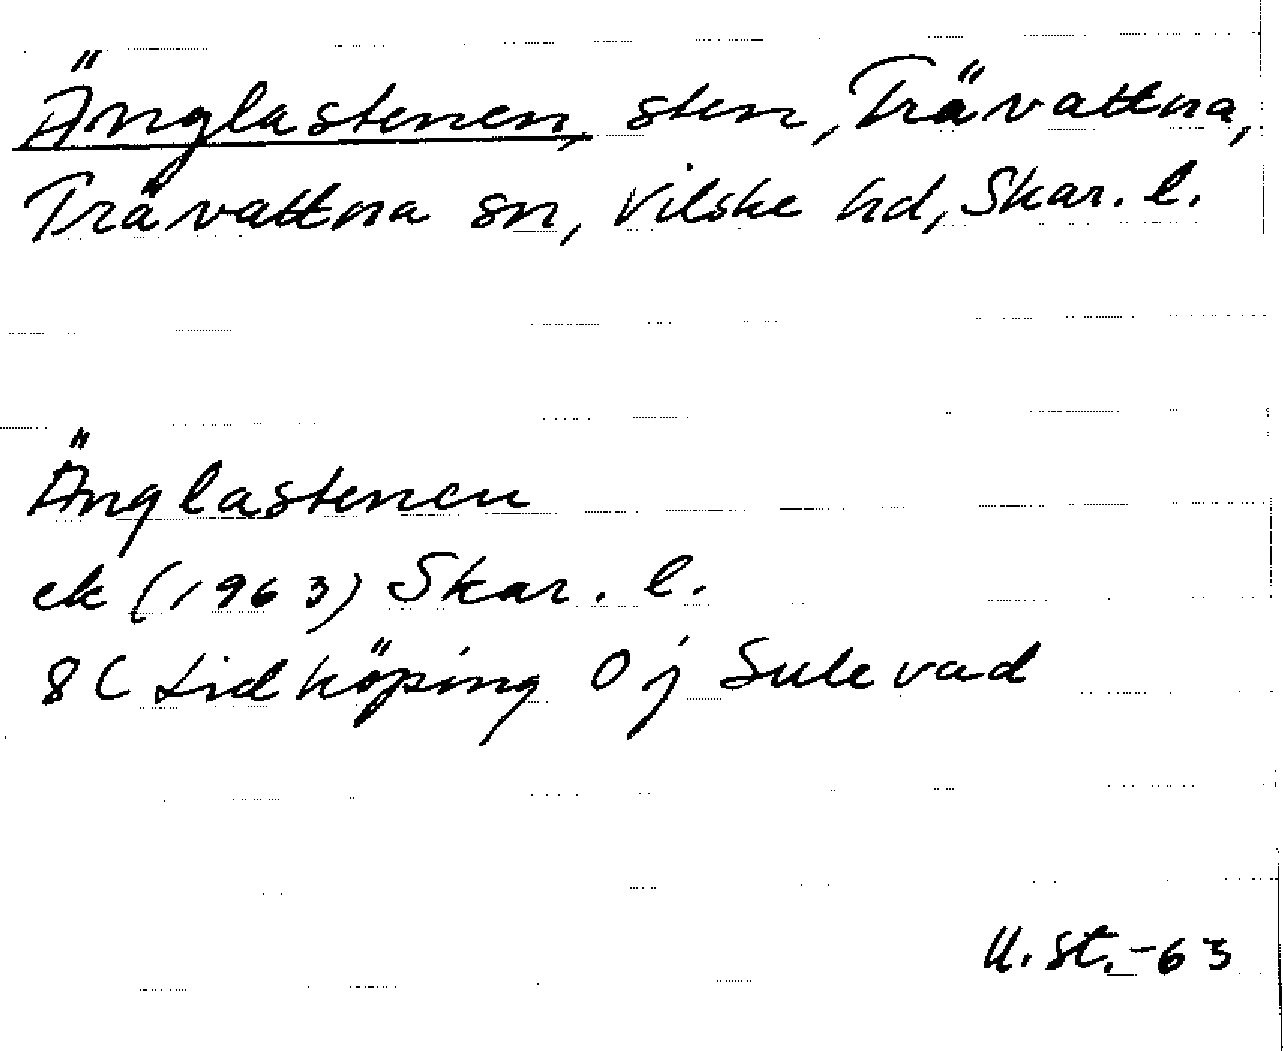 Änglastenen, sten, Trävattna,
Trävattna sn, Vilske hd, Skar. l.
Änglastenen
ek (1963) Skar. l.
8C Lidköping 0j Sulevad
U. St. -63